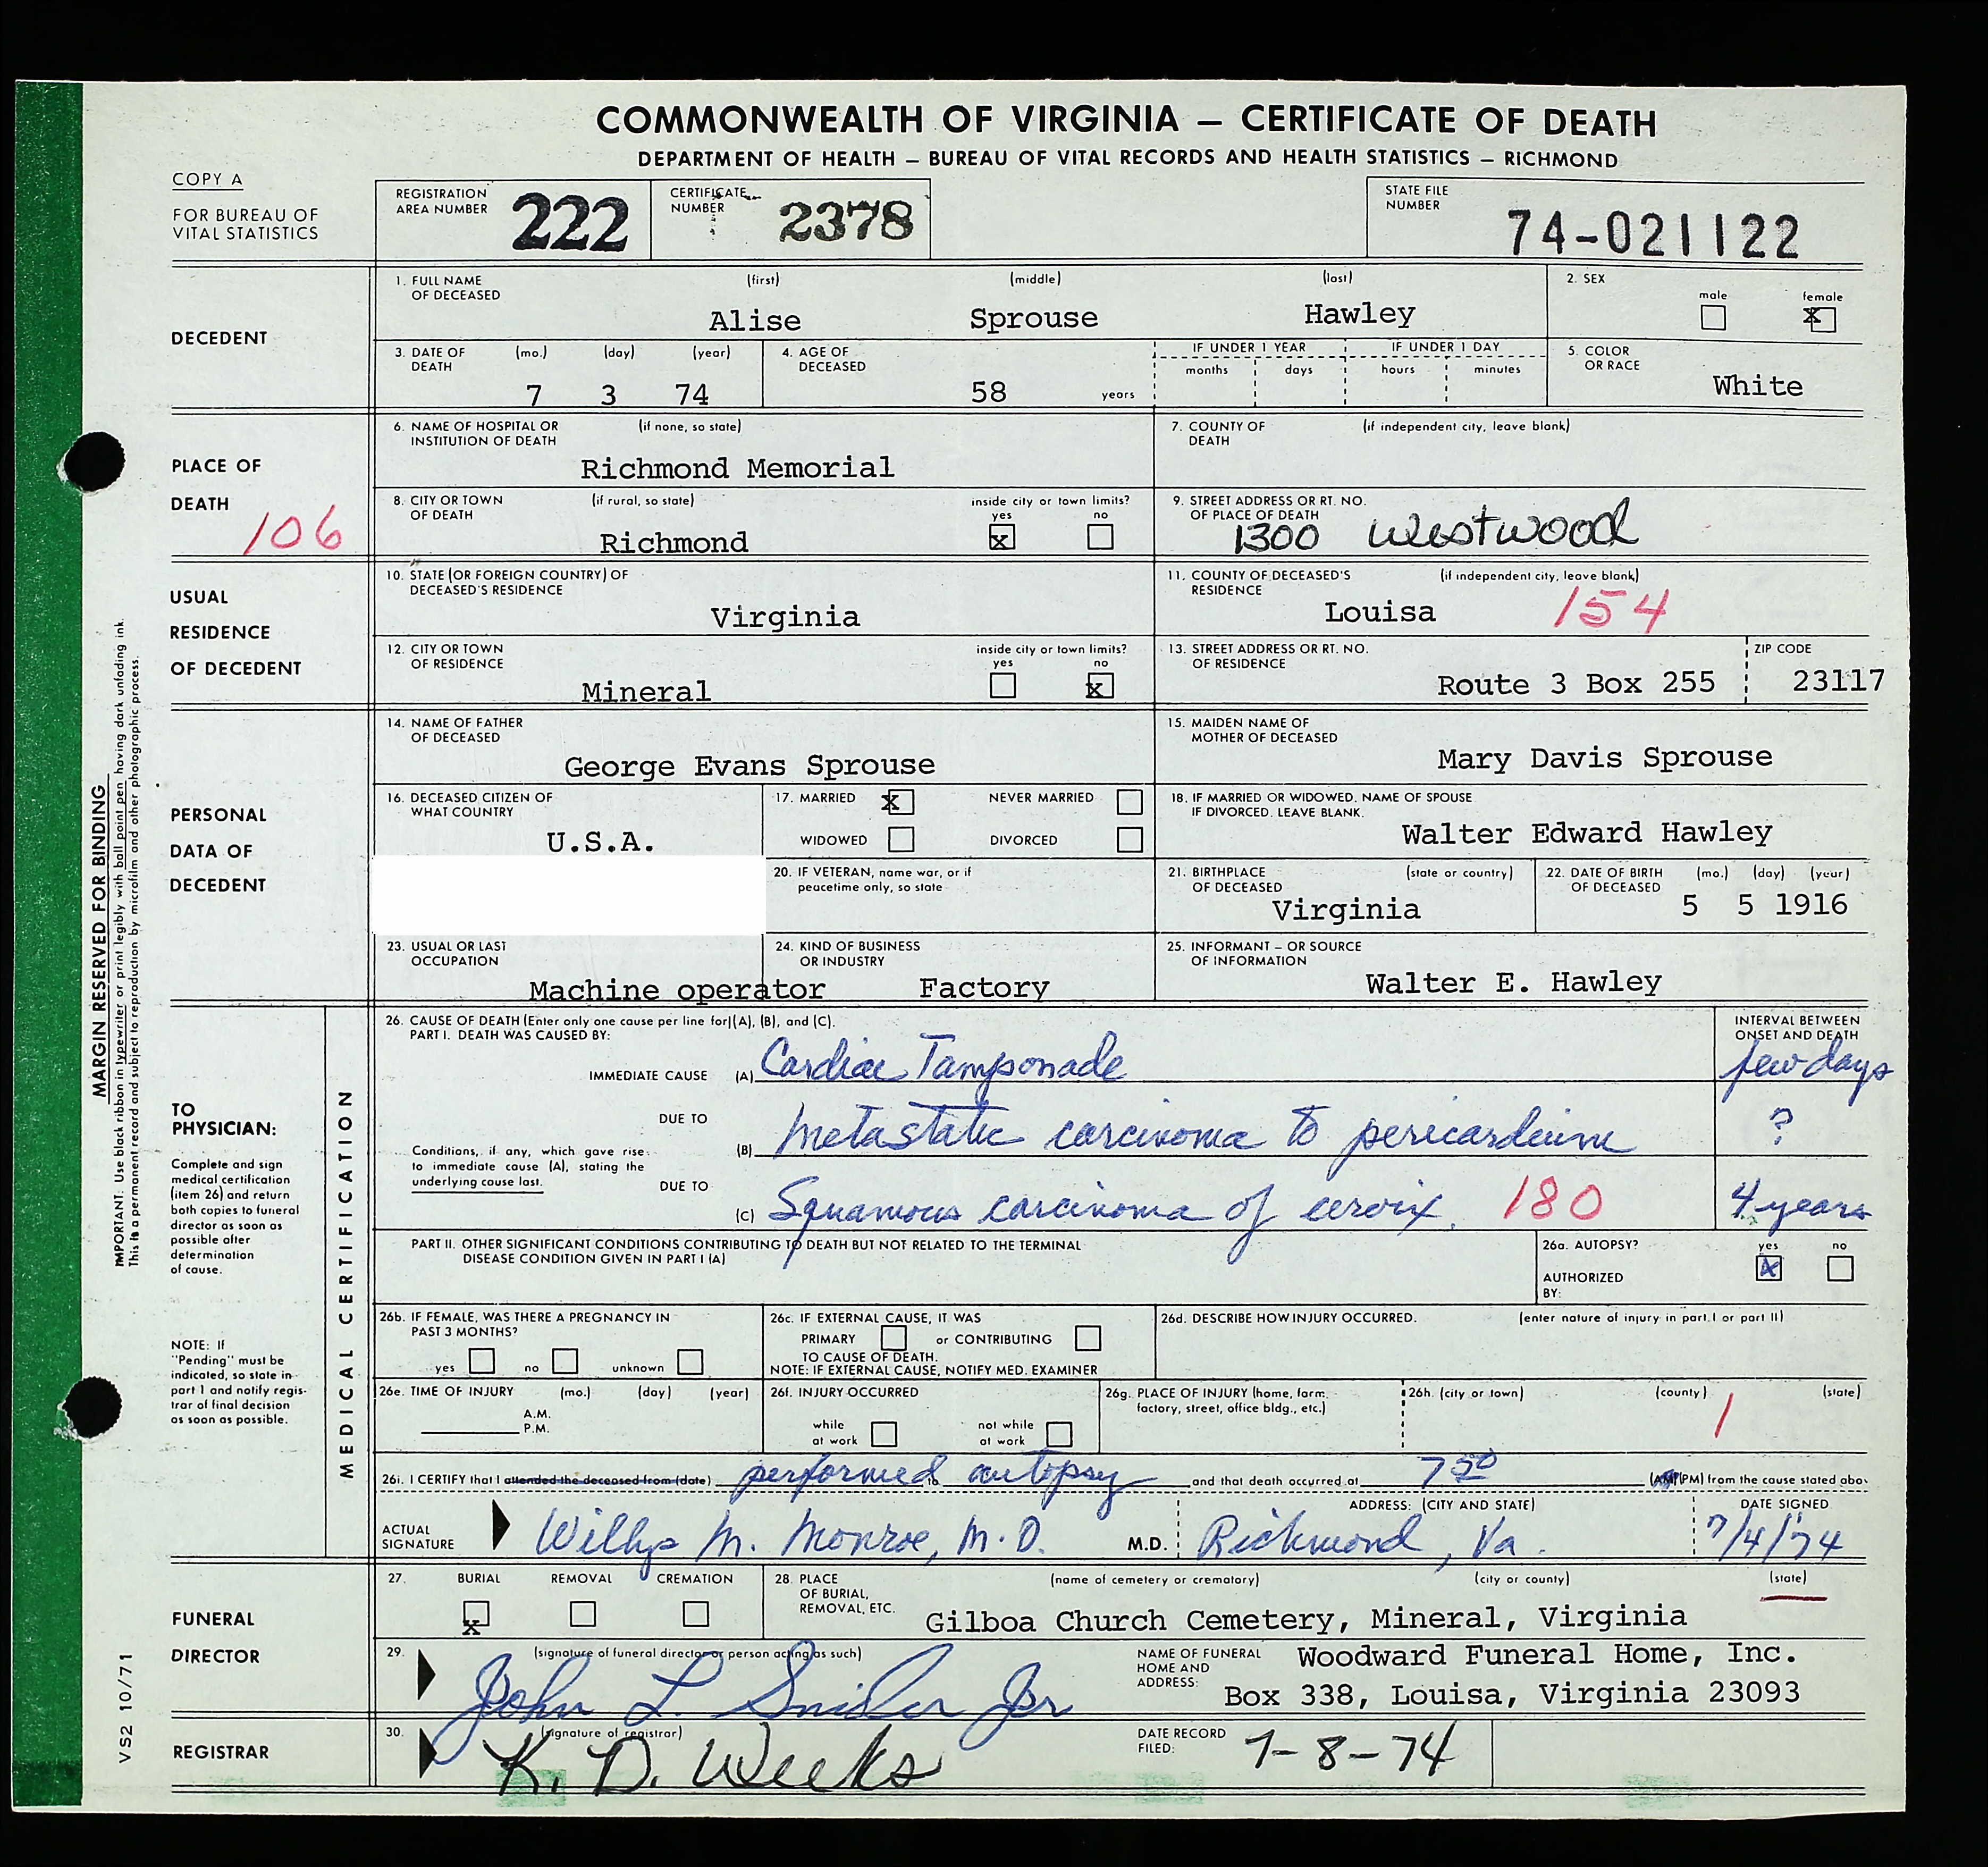 COMMONWEALTH OF VIRGINIA — CERTIFICATE OF DEATH
DEPARTMENT OF HEALTH — BUREAU OF VITAL RECORDS AND HEALTH STATISTICS — RICHMOND
COPY A
FOR BUREAU OF
VITAL STATISTICS
REGISTRATION
AREA NUMBER 222
CERTIFICATE
NUMBER 2378
STATE FILE
NUMBER 74-021122
DECEDENT
1. FULL NAME
OF DECEASED
(first) (middle) (last)
Alise Sprouse Hawley
2. SEX
male female
X
3. DATE OF
DEATH
(mo.) (day) (year)
7 3 74
4. AGE OF
DECEASED
58 years
IF UNDER 1 YEAR IF UNDER 1 DAY
months days hours minutes
5. COLOR
OR RACE
White
PLACE OF
DEATH
106
6. NAME OF HOSPITAL OR
INSTITUTION OF DEATH
(if none, so state)
Richmond Memorial
7. COUNTY OF
DEATH
(if independent city, leave blank)
8. CITY OR TOWN
OF DEATH
(if rural, so state)
Richmond
inside city or town limits?
yes no
x
9. STREET ADDRESS OR RT. NO.
OF PLACE OF DEATH
1300 Westwood
USUAL
RESIDENCE
OF DECEDENT
10. STATE (OR FOREIGN COUNTRY) OF
DECEASED'S RESIDENCE
Virginia
11. COUNTY OF DECEASED'S
RESIDENCE
(if independent city, leave blank)
Louisa 154
12. CITY OR TOWN
OF RESIDENCE
Mineral
inside city or town limits?
yes no
x
13. STREET ADDRESS OR RT. NO.
OF RESIDENCE
Route 3 Box 255
ZIP CODE
23117
PERSONAL
DATA OF
DECEDENT
14. NAME OF FATHER
OF DECEASED
George Evans Sprouse
15. MAIDEN NAME OF
MOTHER OF DECEASED
Mary Davis Sprouse
16. DECEASED CITIZEN OF
WHAT COUNTRY
U.S.A.
17. MARRIED X NEVER MARRIED
WIDOWED DIVORCED
18. IF MARRIED OR WIDOWED, NAME OF SPOUSE
IF DIVORCED, LEAVE BLANK.
Walter Edward Hawley
20. IF VETERAN, name war, or if
peacetime only, so state
21. BIRTHPLACE
OF DECEASED
(state or country)
Virginia
22. DATE OF BIRTH
OF DECEASED
(mo.) (day) (year)
5 5 1916
23. USUAL OR LAST
OCCUPATION
Machine operator
24. KIND OF BUSINESS
OR INDUSTRY
Factory
25. INFORMANT – OR SOURCE
OF INFORMATION
Walter E. Hawley
MARGIN RESERVED FOR BINDING
IMPORTANT: Use black ribbon in typewriter or print legibly with ball point pen having dark unfading ink.
This is a permanent record and subject to reproduction by microfilm and other photographic process.
VS2 10/71
TO
PHYSICIAN:
Complete and sign
medical certification
(item 26) and return
both copies to funeral
director as soon as
possible after
determination
of cause.
NOTE: If
"Pending" must be
indicated, so state in
part 1 and notify regis-
trar of final decision
as soon as possible.
MEDICAL CERTIFICATION
26. CAUSE OF DEATH (Enter only one cause per line for (A), (B), and (C).
PART I. DEATH WAS CAUSED BY:
INTERVAL BETWEEN
ONSET AND DEATH
IMMEDIATE CAUSE (A) Cardiac Tamponade few days
DUE TO
Conditions, if any, which gave rise
to immediate cause (A), stating the
underlying cause last.
(B) Metastatic carcinoma to pericardium ?
DUE TO
(C) Squamous carcinoma of cervix. 180 4 years
PART II. OTHER SIGNIFICANT CONDITIONS CONTRIBUTING TO DEATH BUT NOT RELATED TO THE TERMINAL
DISEASE CONDITION GIVEN IN PART I (A)
26a. AUTOPSY? yes no
X
AUTHORIZED
BY:
26b. IF FEMALE, WAS THERE A PREGNANCY IN
PAST 3 MONTHS?
yes no unknown
26c. IF EXTERNAL CAUSE, IT WAS
PRIMARY or CONTRIBUTING
TO CAUSE OF DEATH.
NOTE: IF EXTERNAL CAUSE, NOTIFY MED. EXAMINER
26d. DESCRIBE HOW INJURY OCCURRED. (enter nature of injury in part I or part II)
26e. TIME OF INJURY (mo.) (day) (year)
A.M.
P.M.
26f. INJURY OCCURRED
while
at work
not while
at work
26g. PLACE OF INJURY (home, farm,
factory, street, office bldg., etc.)
26h. (city or town) (county) (state)
1
26i. I CERTIFY that I attended the deceased from (date) performed to autopsy and that death occurred at 7 50 (AM) (PM) from the cause stated abo
ACTUAL
SIGNATURE
Willys M. Monroe, M.D. M.D.
ADDRESS: (CITY AND STATE)
Richmond, Va.
DATE SIGNED
7/4/74
FUNERAL
DIRECTOR
27. BURIAL REMOVAL CREMATION
x
28. PLACE
OF BURIAL,
REMOVAL, ETC.
(name of cemetery or crematory) (city or county) (state)
Gilboa Church Cemetery, Mineral, Virginia
29. (signature of funeral director or person acting as such)
John L. Snider Jr
NAME OF FUNERAL
HOME AND
ADDRESS:
Woodward Funeral Home, Inc.
Box 338, Louisa, Virginia 23093
REGISTRAR
30. (signature of registrar)
K. D. Weeks
DATE RECORD
FILED:
7-8-74